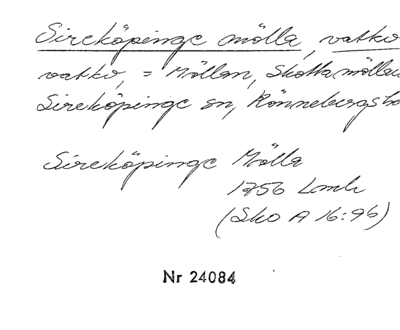 Sireköpinge mölla, vatko
vatko, = Möllan, Skottamöllan
Sireköpinge sn, Rönnebergs
Sireköpinge Mölla
1756 Lmh
(Sko A 16:96)
Nr 24084